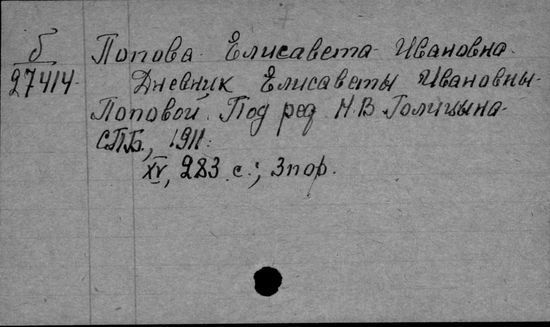 б Попова Елисавета Ивановна.
27414 Дневник Елисаветы Ивановны
Поповой. Под ред Н.В Голицына
С.П.Б., 1911.
XV, 283 с.; 3 пор.